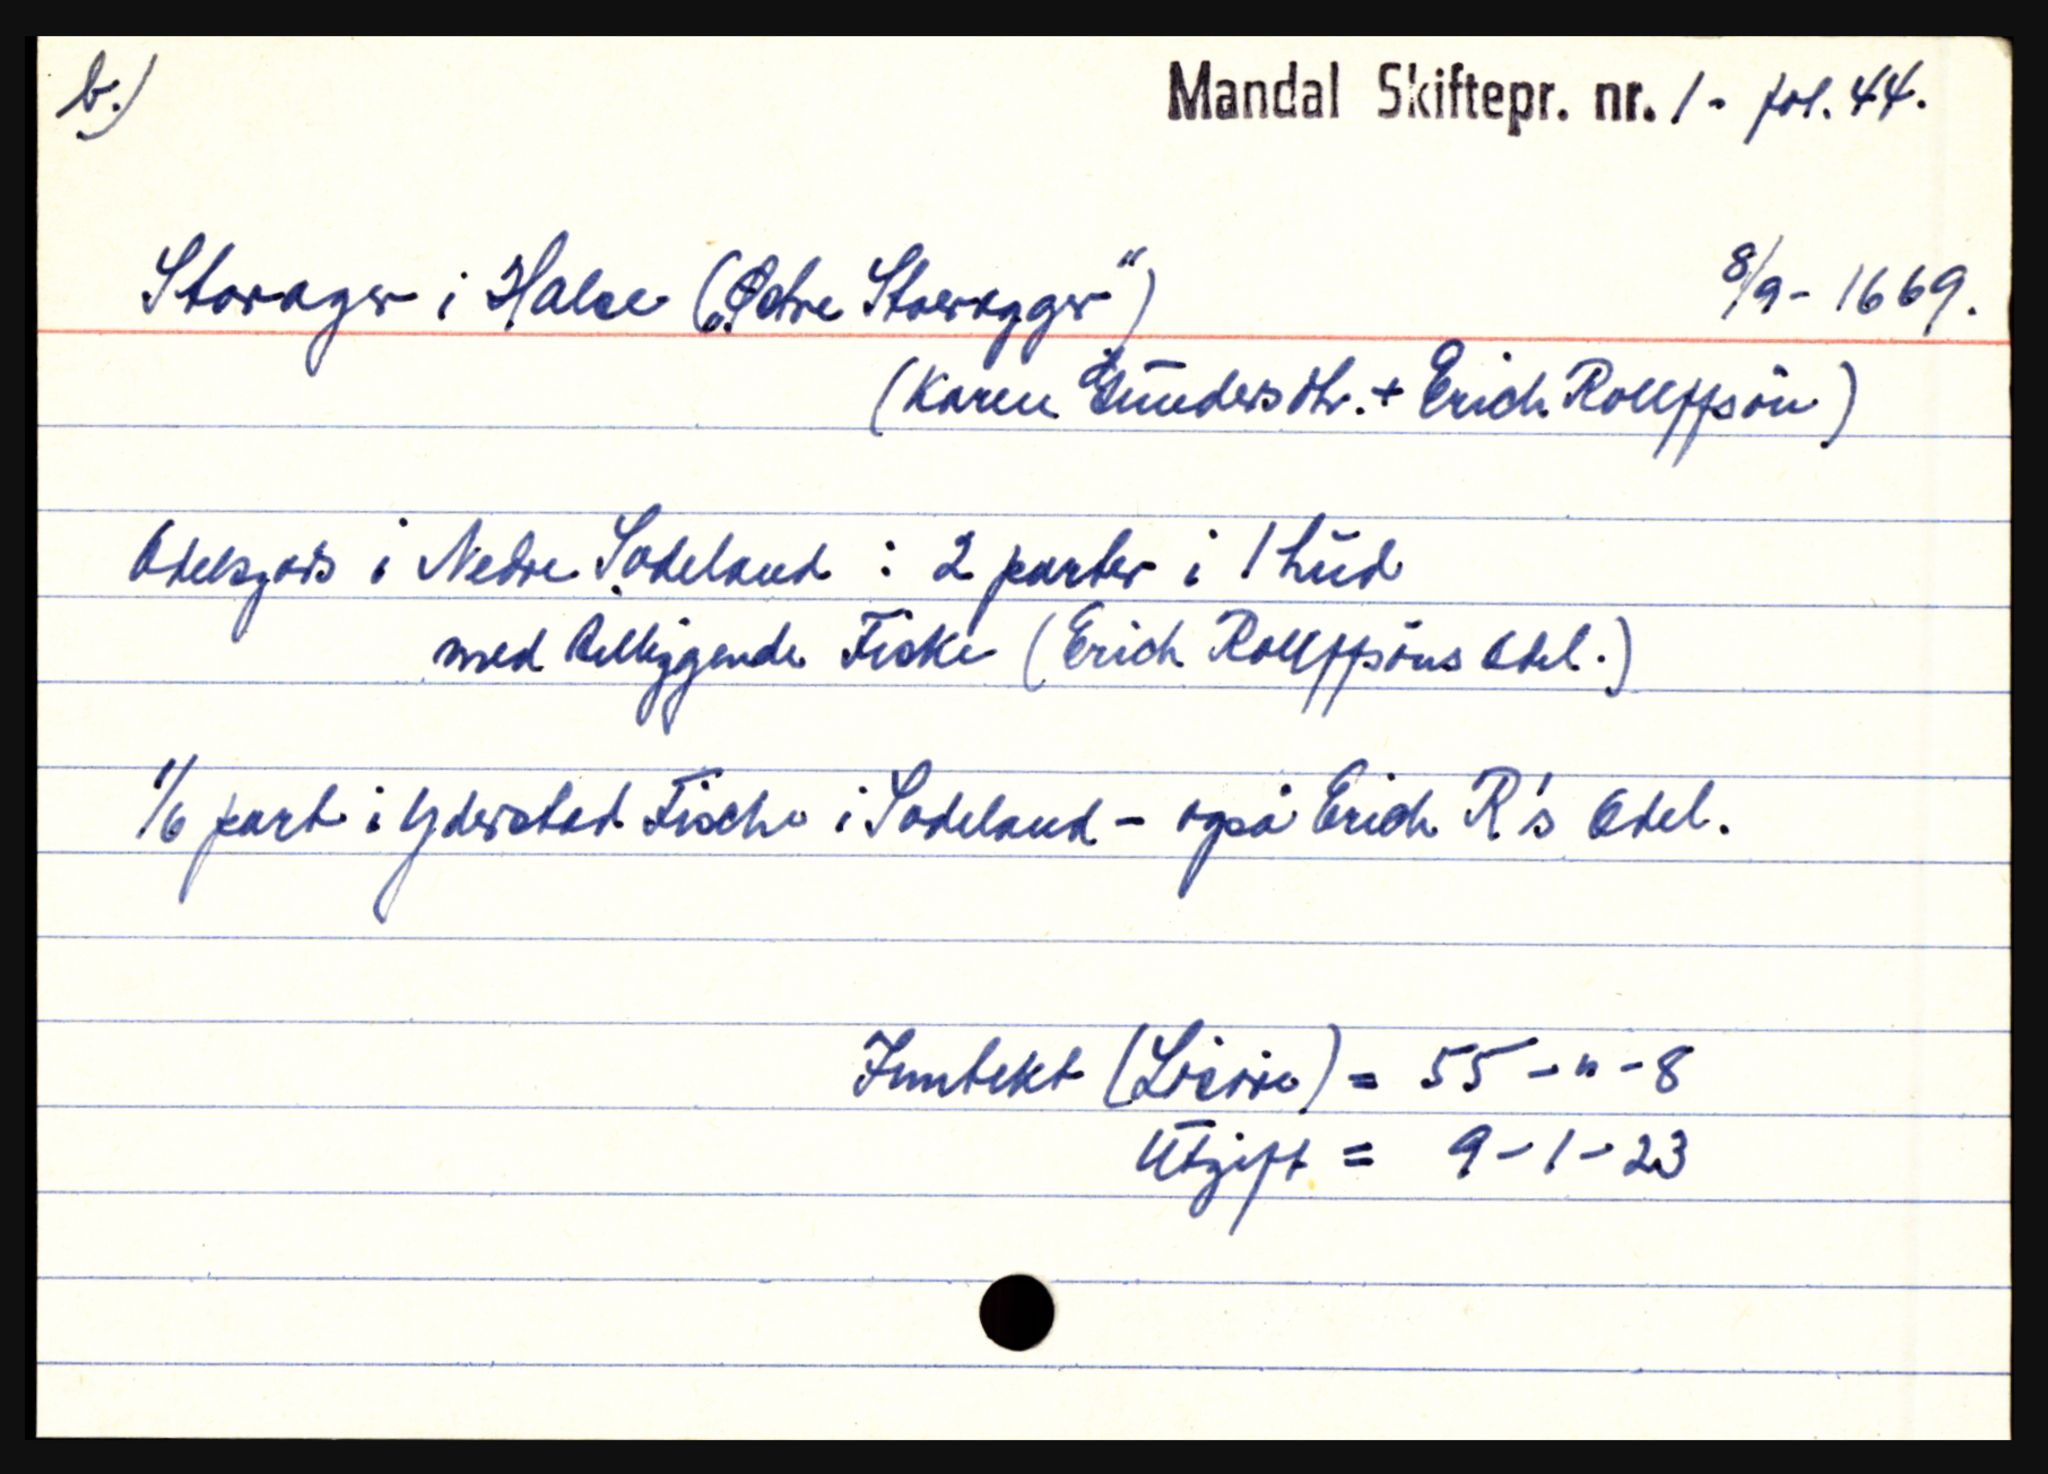 b.) Mandal Skiftepr. nr. 1 - fol. 44.
Storager i Halse („Østre Storagger“) 8/9 - 1669.
(Karen Gundersdtr. + Erich Rollffsøn)
Odelsgods i Nedre Sodeland : 2 parter i 1 hud
med Fiske (Erich Rollffsøns Odel.)
1/6 part i Yderstad Fische i Sodeland - også Erich R's Odel.
Inntekt (Løsøre) = 55 - " - 8
Utgift = 9 - 1 - 23